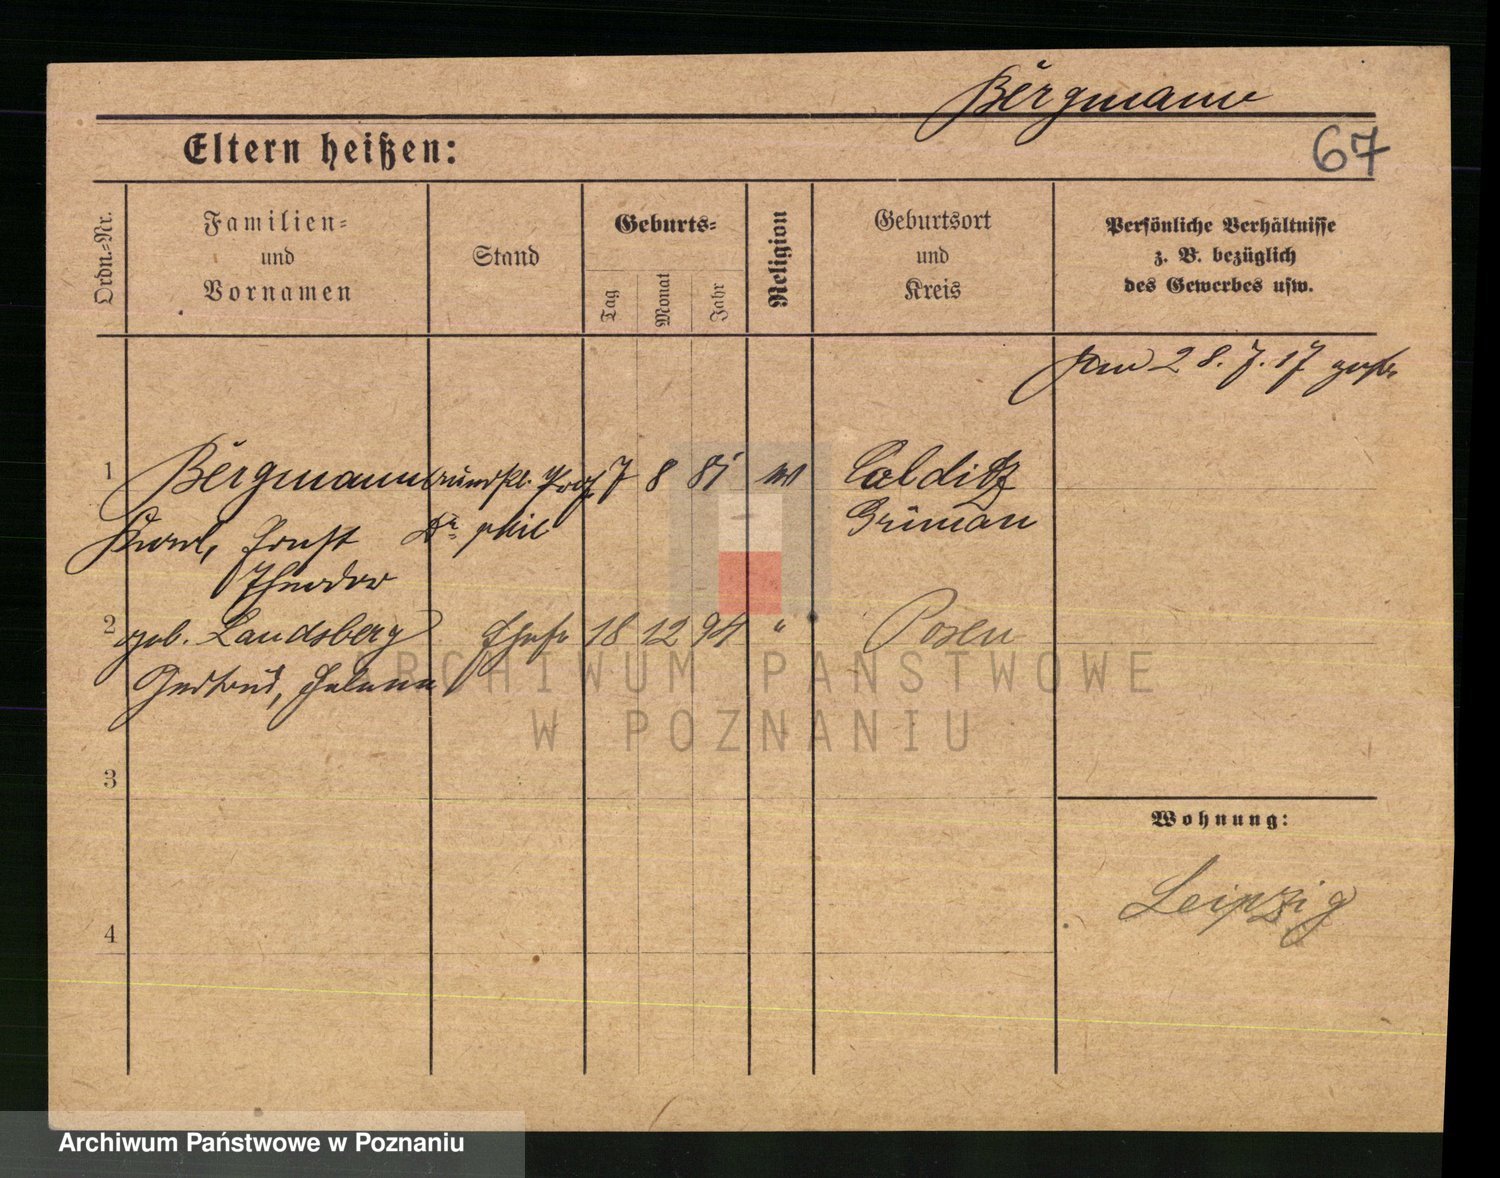 Bergmann
67
Eltern heißen:
Ordn.=Nr.
Familien=
und
Vornamen
Stand
Geburts=
Tag
Monat
Jahr
Religion
Geburtsort
und
Kreis
Persönliche Verhältnisse
z. B. bezüglich
des Gewerbes usw.
28.7.17
1 Bergmann Prof. 7 8 81 Colditz
Karl, Ernst Dr. phil Grimma
Theodor
2 geb. Landsberg Ehefr 18 12 94 " Posen
Gertrud, Helene
ARCHIWUM PAŃSTWOWE
W POZNANIU
3
Wohnung:
Leipzig
4
Archiwum Państwowe w Poznaniu